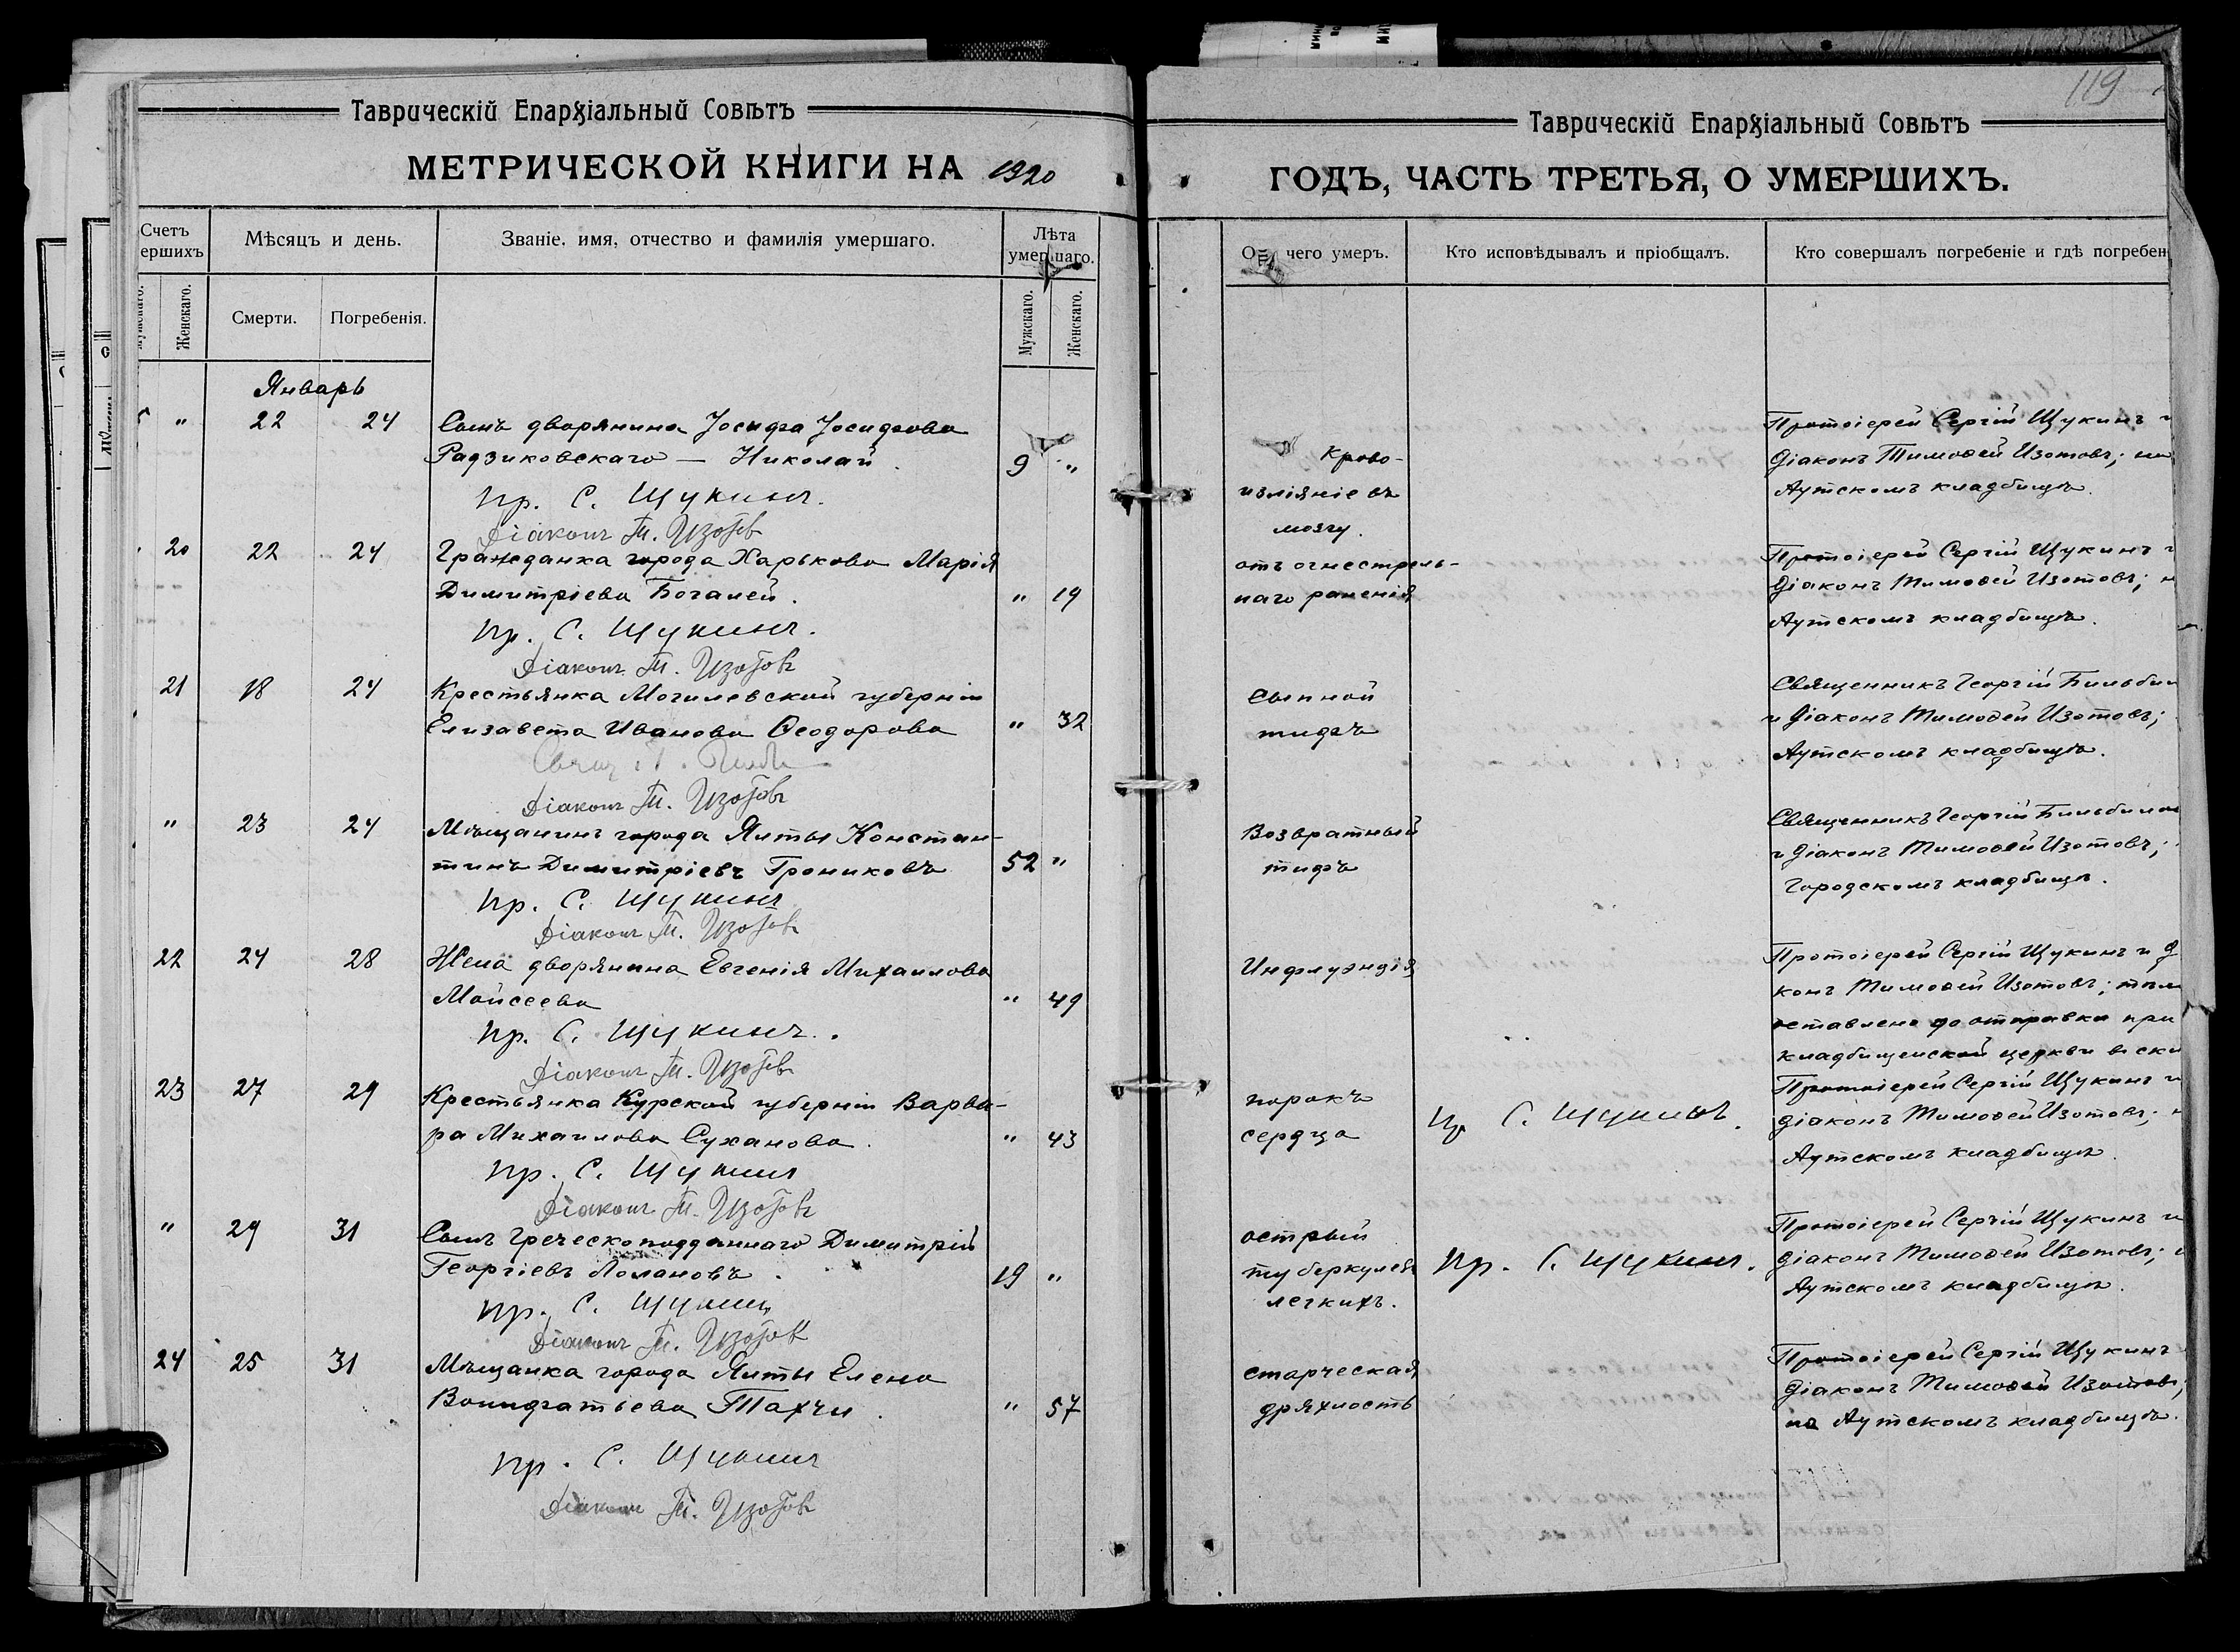 119
Таврическій Епархіальный Совѣтъ
МЕТРИЧЕСКОЙ КНИГИ НА 1920
Счетъ
ершихъ
Мѣсяцъ и день.
Званіе, имя, отчество и фамилія умершаго.
Лѣта
умершаго.
Женскаго.
Смерти.
Погребенія.
Мужскаго.
Женскаго.
Январь
5 " 22 24 Сынъ дворянина Іосифа Іосифова
Радзиковскаго — Николай. 9 "
Пр. С. Щукинъ.
Діаконъ Т. Изотовъ
20 22 24 Гражданка города Харькова Марія
Димитріева Богалей. " 19
Пр. С. Щукинъ.
Діаконъ Т. Изотовъ
21 18 24 Крестьянка Могилевской губерніи
Елизавета Иванова Ѳеодорова " 32
Діаконъ Т. Изотовъ
" 23 24 Мѣщанинъ города Ялты Констан-
тинъ Димитріевъ Грониковъ 52 "
Пр. С. Щукинъ
Діаконъ Т. Изотовъ
22 24 28 Жена дворянина Евгенія Михаилова
Мойсеева " 49
Пр. С. Щукинъ.
Діаконъ Т. Изотовъ
23 27 29 Крестьянка Курской губерніи Варва-
ра Михаилова Суханова. " 43
Пр. С. Щукинъ
Діаконъ Т. Изотовъ
" 29 31 Сынъ Греческоподданнаго Димитрій
Георгіевъ Лолановъ. 19 "
Пр. С. Щукинъ
Діаконъ Т. Изотовъ
24 25 31 Мѣщанка города Ялты Елена
Вонифатьева Тахчи. " 57
Пр. С. Щукинъ
Діаконъ Т. Изотовъ
Таврическій Епархіальный Совѣтъ
ГОДЪ, ЧАСТЬ ТРЕТЬЯ, О УМЕРШИХЪ.
Отъ чего умеръ.
Кто исповѣдывалъ и пріобщалъ.
Кто совершалъ погребеніе и гдѣ погребен
Крово-
изліяніе въ
мозгу.
Протоіерей Сергій Щукинъ и
Діаконъ Тимоѳей Изотовъ; на
Аутскомъ кладбищѣ.
отъ огнестрель-
наго раненія
Протоіерей Сергій Щукинъ и
Діаконъ Тимоѳей Изотовъ; н
Аутскомъ кладбищѣ.
Сыпной
тифъ
Священникъ Георгій Бильбил
и Діаконъ Тимоѳей Изотовъ;
Аутскомъ кладбищѣ.
Возвратный
тифъ
Священникъ Георгій Бильбило
и Діаконъ Тимоѳей Изотовъ;
Городскомъ кладбищѣ.
Инфлуэндія
Протоіерей Сергій Щукинъ и Д
конъ Тимоѳей Изотовъ; тѣло
оставлено до отправки при
кладбищенской церкви в ски
порокъ
сердца
Пр. С. Щукинъ.
Протоіерей Сергій Щукинъ и
діаконъ Тимоѳей Изотовъ; н
Аутскомъ кладбищѣ.
острый
туберкулез
легкихъ.
Пр. С. Щукинъ.
Протоіерей Сергій Щукинъ и
діаконъ Тимоѳей Изотовъ;
Аутскомъ кладбищѣ.
старческая
дряхлость
Протоіерей Сергій Щукинъ
Діаконъ Тимоѳей Изотовъ;
на Аутскомъ кладбищѣ.